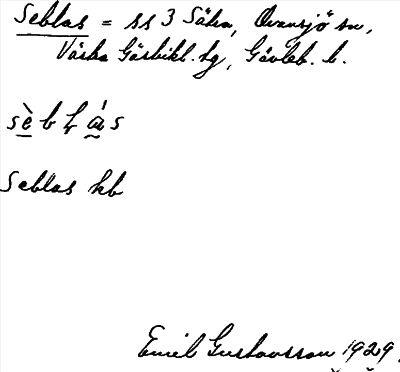 Seblas = ss 3 Såka, Ovansjö sn,
Västra Gästrikl. hg, Gävleb. l.
sèbḷas
Seblas kb
Emil Gustavsson 1929.